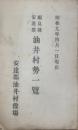 昭和九年四月一日現在
福島縣
安達郡
油井村勢一覽
安達郡油井村役場